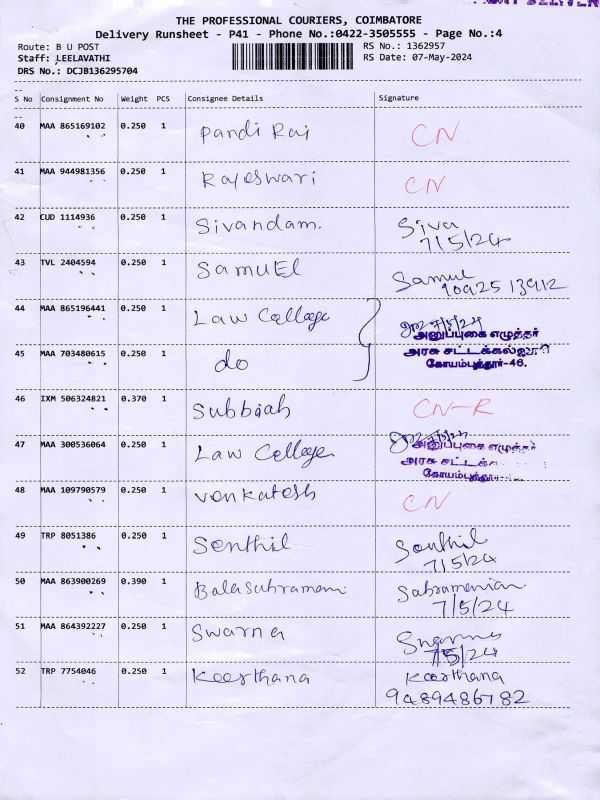 THE PROFESSIONAL COURIERS, COIMBATORE
Delivery Runsheet - P41 - Phone No.:0422-3505555 - Page No.:4
Route: B U POST RS No.: 1362957
Staff: LEELAVATHI RS Date: 07-May-2024
DRS No.: DCJB136295704
--
S No Consignment No Weight PCS Consignee Details Signature
--
40 MAA 865169102 0.250 1 Pandi Raj CN
41 MAA 944981356 0.250 1 Rajeswari CN
42 CUD 1114936 0.250 1 Sivandam. Siva
7/5/24
43 TVL 2404594 0.250 1 SamuEl Samul
90925 13912
44 MAA 865196441 0.250 1 Law College 7/5/24
அனுப்புகை எழுத்தர்
45 MAA 703480615 0.250 1 do அரசு சட்டக்கல்லூரி
கோயம்புத்தூர்-46.
46 IXM 506324821 0.370 1 Subbiah CN-R
47 MAA 300536064 0.250 1 Law College அனுப்புகை எழுத்தர்
அரசு சட்டக்
48 MAA 109790579 0.250 1 Venkatesh CN
49 TRP 8051386 0.250 1 Senthil Senthil
7/5/24
50 MAA 863900269 0.390 1 Balasubramani Sabramanian
7/5/24
51 MAA 864392227 0.250 1 Swarna
7/5/24
52 TRP 7754046 0.250 1 Keerthana Keerthana
9489486782